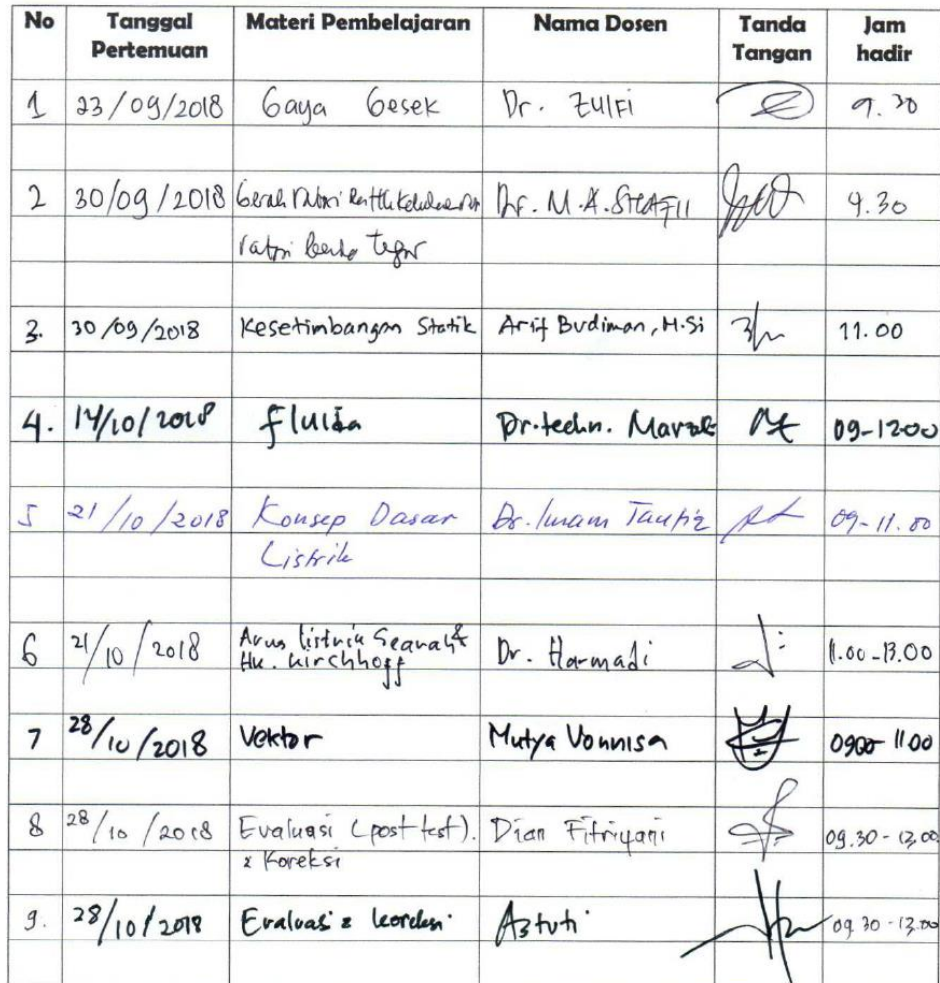 No Tanggal Pertemuan Materi Pembelajaran Nama Dosen Tanda Tangan Jam hadir
1 23/09/2018 Gaya Gesek Dr. Zulfi 9.30
2 30/09/2018 Dr. M.A. SHAFII 9.30
tegar
3. 30/09/2018 Kesetimbangan Statik Arif Budiman, M.Si 11.00
4. 14/10/2018 fluida Dr.techn. Marzuki 09-12.00
5 21/10/2018 Konsep Dasar Dr. Imam Taufiq 09-11.00
Listrik
6 21/10/2018 Arus listrik Searah & Dr. Harmadi 11.00-13.00
Hk. Kirchhoff
7 28/10/2018 Vektor Mutya Vonnisa 0900-1100
8 28/10/2018 Evaluasi (post test). Dian Fitriyani 09.30-13.00
& Koreksi
9. 28/10/2018 Evaluasi & koreksi Astuti 09.30-13.00